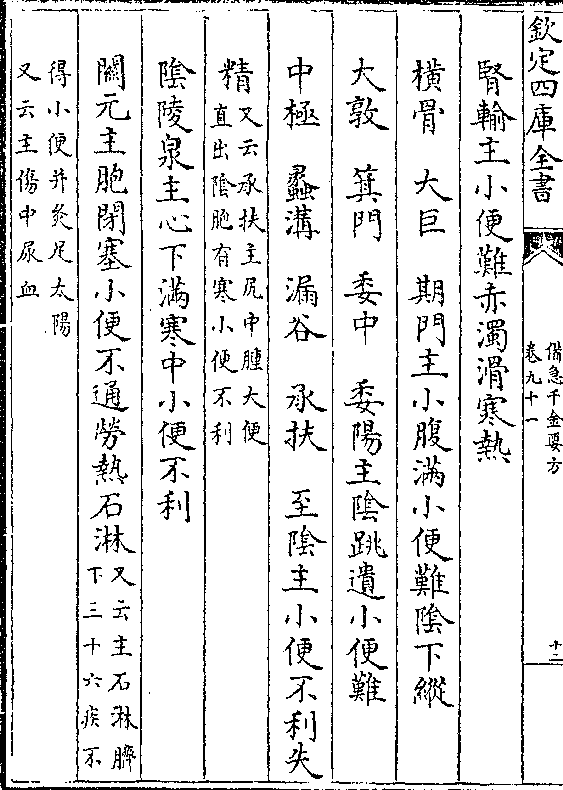 欽定四庫全書
備急千金要方
卷九十一
十二
腎輸主小便難赤濁滑寒熱
橫骨　大巨　期門主小腹滿小便難陰下縱
大敦　箕門　委中　委陽主陰跳遺小便難
中極　蠡溝　漏谷　承扶　至陰主小便不利失
精又云承扶主尻中腫大便
直出陰胞有寒小便不利
陰陵泉主心下滿寒中小便不利
關元主胞閉塞小便不通勞熱石淋又云主石淋臍
下三十六疾不
得小便并灸足太陽
又云主傷中尿血